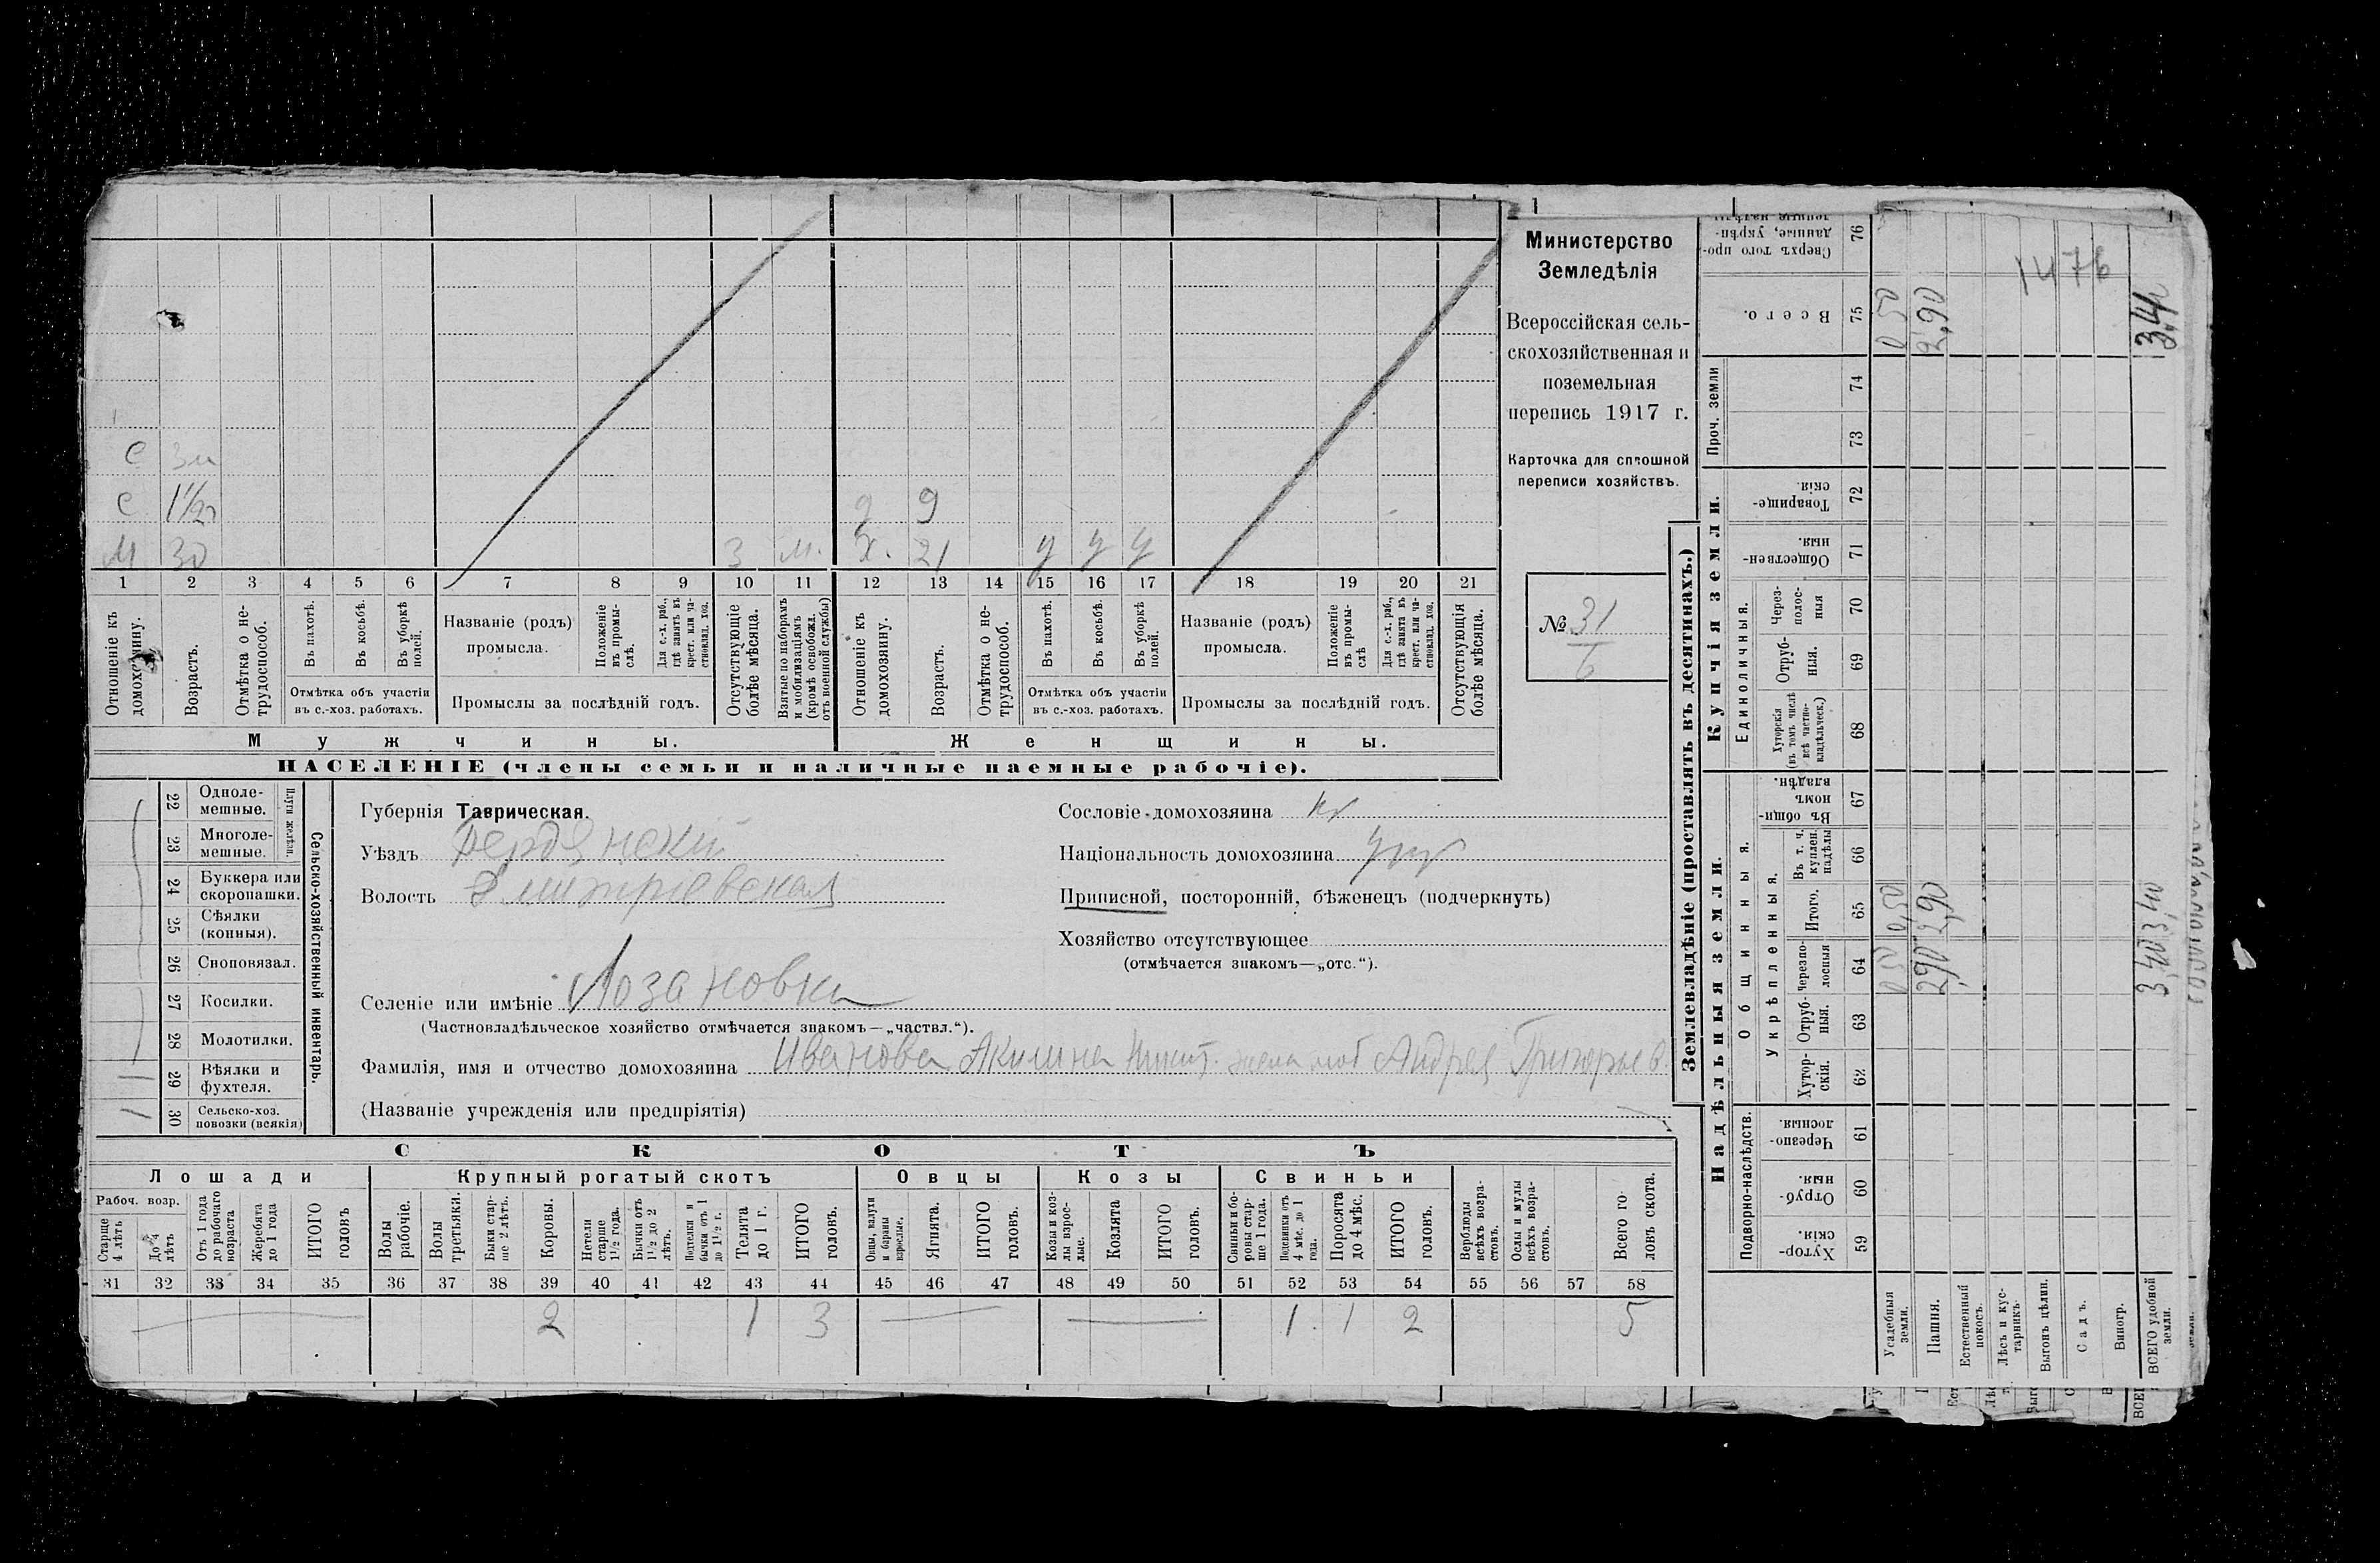 Министерство
Земледѣлія
Всероссійская сель-
скохозяйственная и
поземельная
перепись 1917 г.
Карточка для сплошной
переписи хозяйствъ.
№ 31
6
С 3 м
С 1 1/2
М 30 3 м.
д 9
х. 21 у у у
1 2 3 4 5 6 7 8 9 10 11 12 13 14 15 16 17 18 19 20 21
Отношеніе къ домохозяину.
Возрастъ.
Отмѣтка о не-трудоспособ.
Въ пахотѣ.
Въ косьбѣ.
Въ уборкѣ полей.
Отмѣтка объ участіи
въ с.-хоз. работахъ.
Названіе (родъ)
промысла.
Положеніе въ промы-слѣ.
Для с.-х. раб., гдѣ занятъ въ крест. или ча-стновлад. хоз.
Промыслы за послѣдній годъ.
Отсутствующіе болѣе мѣсяца.
Взятые по наборамъ и мобилизаціямъ (кромѣ освобожд. отъ военной службы)
Отношеніе къ домохозяину.
Возрастъ.
Отмѣтка о не-трудоспособ.
Въ пахотѣ.
Въ косьбѣ.
Въ уборкѣ полей.
Отмѣтка объ участіи
въ с.-хоз. работахъ.
Названіе (родъ)
промысла.
Положеніе въ промы-слѣ
Для с.-х. раб., гдѣ занята въ крест. или ча-стновлад. хоз.
Промыслы за послѣдній годъ.
Отсутствующія болѣе мѣсяца.
Мужчины. Женщины.
НАСЕЛЕНІЕ (члены семьи и наличные наемные рабочіе).
Сельско-хозяйственный инвентарь.
Плуги желѣзн.
22 Одноле-мешные.
23 Многоле-мешные.
24 Буккера или скоропашки.
25 Сѣялки (конныя).
26 Сноповязал.
27 Косилки.
28 Молотилки.
29 Вѣялки и фухтеля. 1
30 Сельско-хоз. повозки (всякія) 1
Губернія Таврическая.
Уѣздъ Бердянскій
Волость Дмитріевская
Селеніе или имѣніе Лозановка
(Частновладѣльческое хозяйство отмѣчается знакомъ—„частвл.“).
Фамилія, имя и отчество домохозяина Иванова Акилина Никит. жена моб Андрея Григорьев.
(Названіе учрежденія или предпріятія)
Сословіе домохозяина кр
Національность домохозяина
Приписной, посторонній, бѣженецъ (подчеркнуть)
Хозяйство отсутствующее
(отмѣчается знакомъ—„отс.“).
СКОТЪ
Лошади Крупный рогатый скотъ Овцы Козы Свиньи
Рабоч. возр.
Старше 4 лѣтъ
До 4 лѣтъ
Отъ 1 года до рабочаго возраста
Жеребята до 1 года
ИТОГО головъ
Волы рабочіе.
Волы третьяки.
Быки стар-ше 2 лѣтъ.
Коровы.
Нетели старше 1½ года.
Бычки отъ 1½ до 2 лѣтъ.
Подтелки и бычки отъ 1 до 1½ г.
Телята до 1 г.
ИТОГО головъ.
Овцы, валухи и бараны взрослые.
Ягнята.
ИТОГО головъ.
Козы и коз-лы взрос-лые.
Козлята
ИТОГО головъ.
Свиньи и бо-ровы стар-ше 1 года.
Подсвинки отъ 4 мѣс. до 1 года.
Поросята до 4 мѣс.
ИТОГО головъ.
Верблюды всѣхъ возра-стовъ.
Ослы и мулы всѣхъ возра-стовъ.
Всего го-ловъ скота.
31 32 33 34 35 36 37 38 39 40 41 42 43 44 45 46 47 48 49 50 51 52 53 54 55 56 57 58
2 1 3 1 1 2 5
Землевладѣніе (проставлять въ десятинахъ.)
Надѣльныя земли. Купчія земли.
Проч. земли
Подворно-наслѣдств.
Общинныя.
Укрѣпленныя.
Единоличныя.
59 Хутор-скія.
60 Отруб-ныя.
61 Черезпо-лосныя.
62 Хутор-скія.
63 Отруб-ныя.
64 Черезпо-лосныя
65 Итого.
66 Въ т. ч. куплен. надѣлы
67 Въ общи-номъ владѣн.
68 Хуторскія (въ томъ числѣ всѣ частно-владѣльческ.)
69 Отруб-ныя.
70 Через-полос-ныя
71 Обществен-ныя.
72 Товарище-скія.
73
74
75 Всего.
76 Сверхъ того про-данные, укрѣп-ленные надѣлы
Усадебныя земли. 0,50 0,50 0 50
Пашня. 2,90 2,90 2,90
Естественный покосъ.
Лѣсъ и кус-тарникъ.
Выгонъ цѣлин.
Садъ.
Виногр.
ВСЕГО удобной земли. 3,40 3,40 3,40
1476